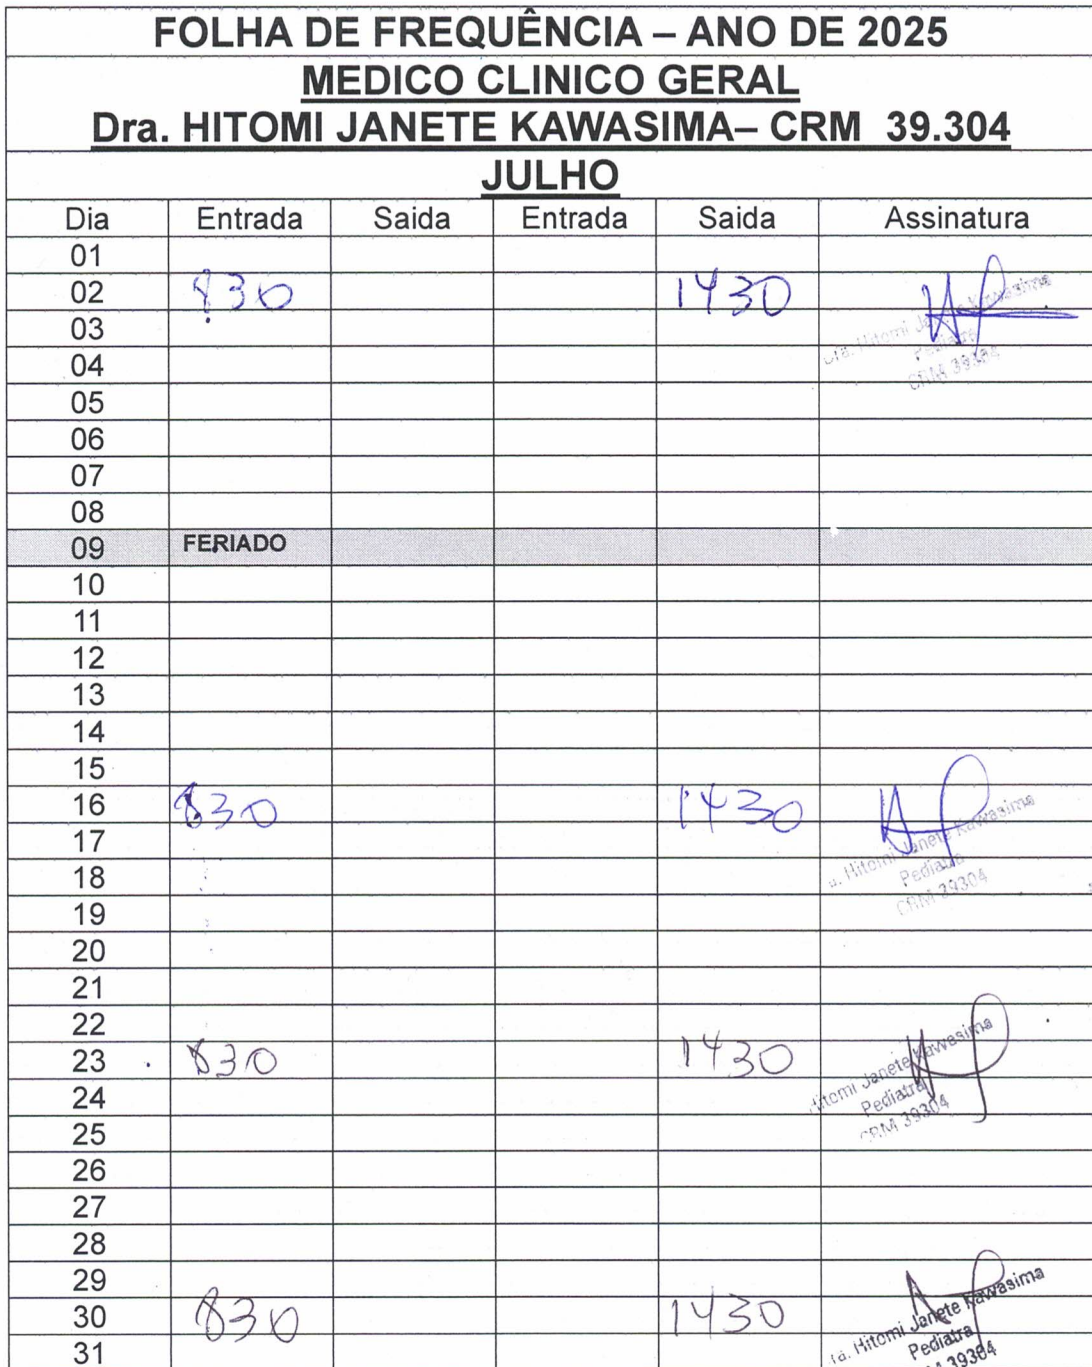 FOLHA DE FREQUÊNCIA – ANO DE 2025
MEDICO CLINICO GERAL
Dra. HITOMI JANETE KAWASIMA– CRM 39.304
JULHO
Dia Entrada Saida Entrada Saida Assinatura
01
02 830 1430
03 Dra. Hitomi Janete Kawasima
Pediatra
04 CRM 39304
05
06
07
08
09 FERIADO
10
11
12
13
14
15
16 830 1430
17 a. Hitomi Janete Kawasima
18 Pediatra
CRM 39304
19
20
21
22
23 830 1430
Hitomi Janete Kawasima
24 Pediatra
25 CRM 39304
26
27
28
29
30 830 1430
ra. Hitomi Janete Kawasima
31 Pediatra
M 39304